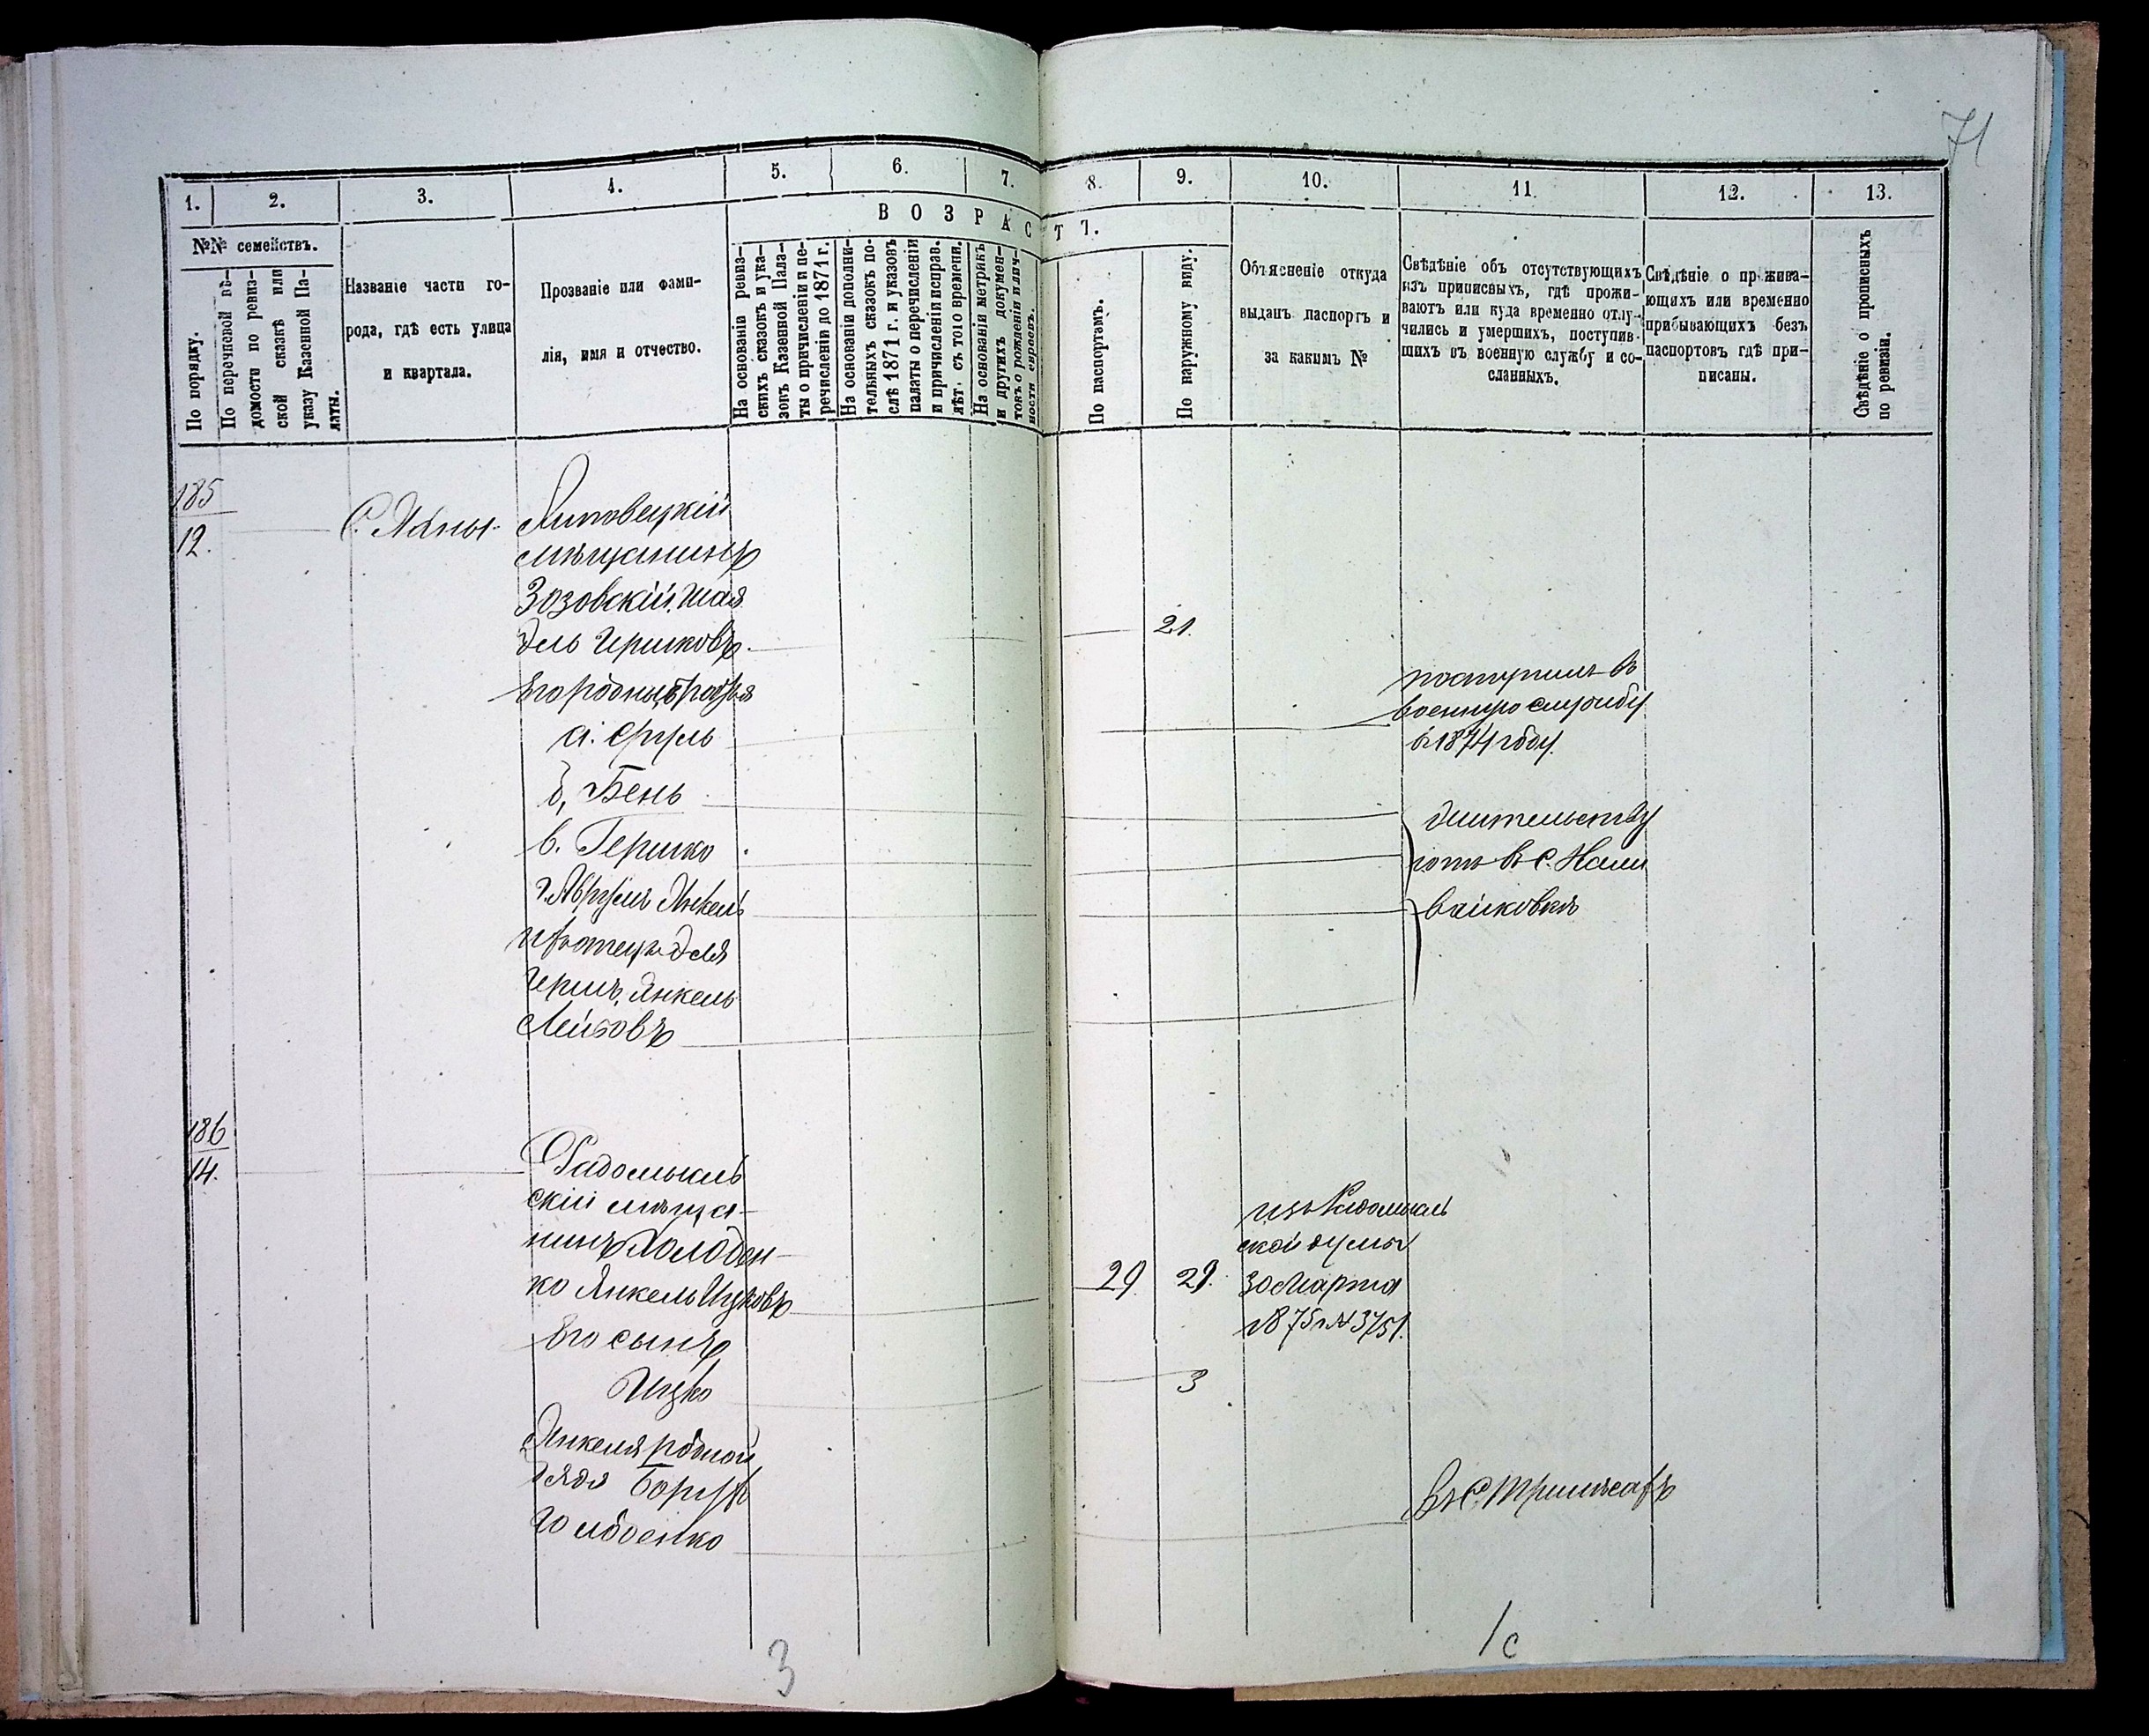 71
1.
2.
3.
4.
5.
6.
7.
8.
9.
10.
11.
12.
13.
ВОЗРАСТ 7.
№№ семействъ.
По порядку.
По перечневой вѣ-
домости по ревиз-
ской сказкѣ или
указу Казенной Па-
латы.
Названіе части го-
рода, гдѣ есть улица
и квартала.
Прозваніе или фами-
лія, имя и отчество.
На основаніи ревиз-
скихъ сказокъ и ука-
зокъ Казенной Пала-
ты о причисленіи и пе-
речисленіи до 1871 г.
На основаніи дополни-
тельныхъ сказокъ по-
слѣ 1871 г. и указовъ
палаты о перечисленіи
и причисленіи исправ.
лѣт. съ того времени.
На основаніи метрикъ
и другихъ докумен-
токъ о рожденіи и лич-
ности евреевъ.
По паспортамъ.
По наружному виду.
Объясненіе откуда
выданъ паспортъ и
за какимъ №
Свѣдѣніе объ отсутствующихъ
изъ приписныхъ, гдѣ прожи-
ваютъ или куда временно отлу-
чились и умершихъ, поступив-
шихъ въ военную службу и со-
сланныхъ.
Свѣдѣніе о прожива-
ющихъ или временно
прибывающихъ безъ
паспортовъ гдѣ при-
писаны.
Свѣдѣніе о прописныхъ
по ревизіи.
185
12.
С.
Липовецкій
мѣщанинъ
Зозовскій, Шая
дель Гершковъ.
21.
Его родные братья
а. Сруль
поступилъ въ
военную службу
в 1874 году.
б, Бень
в. Гершко
г. Аврумъ Янкель
и отецъ дѣдя
Герша, Янкель
Лейзовъ
жительству
ютъ въ с. Нали
вайковкѣ
186
14.
Радомысль
скій мѣща-
нинъ Холоден-
ко Янкель Ицковъ
29
29.
изъ Радомысль
ской думы
30 Марта
1875 г. № 3751.
Его сынъ
Ицко
3
Янкеля родной
дядя Борухъ
Голоденко
въ С.
3
1с